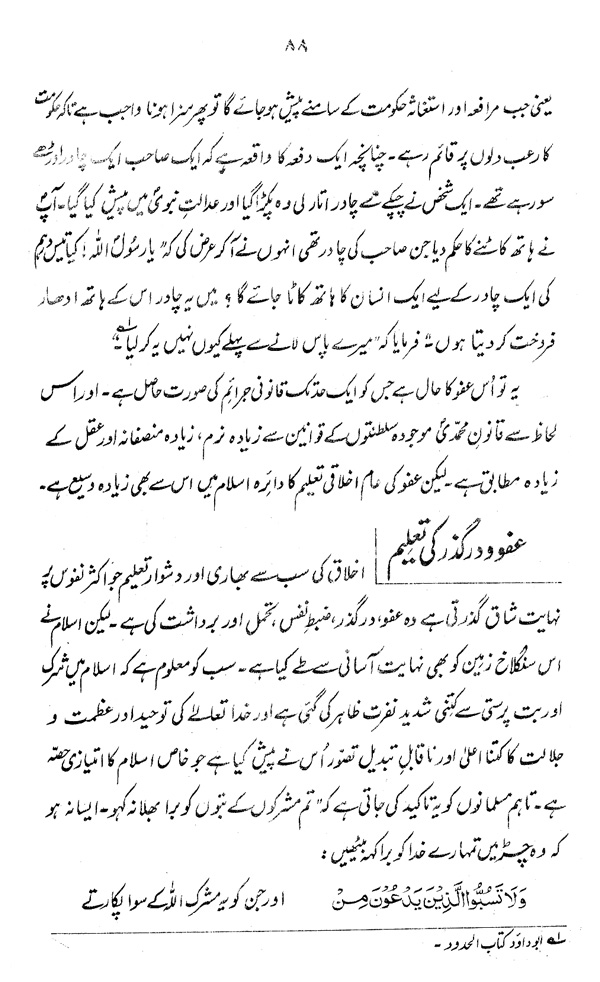 ۸۸
یعنی جب مرافعہ اور استغاثہ حکومت کے سامنے پیش ہوجائے گا تو پھر سزا ہونا واجب ہے تاکہ حکومت
کا رعب دلوں پر قائم رہے۔ چنانچہ ایک دفعہ کا واقعہ ہے کہ ایک صاحب ایک چادر اوڑھے
سو رہے تھے۔ ایک شخص نے چپکے سے چادر اتار لی وہ پکڑا گیا اور عدالتِ نبویؐ میں پیش کیا گیا۔ آپؐ
نے ہاتھ کاٹنے کا حکم دیا جن صاحب کی چادر تھی انہوں نے آکر عرض کی کہ "یا رسولؐ اللہ! کیا تیس درہم
کی ایک چادر کے لیے ایک انسان کا ہاتھ کاٹا جائے گا؟ میں یہ چادر اس کے ہاتھ ادھار
فروخت کر دیتا ہوں" فرمایا کہ "میرے پاس لانے سے پہلے کیوں نہیں یہ کر لیا"۔ لہ
یہ تو اُس عفو کا حال ہے جس کو ایک حد تک قانونی جرائم کی صورت حاصل ہے۔ اور اس
لحاظ سے قانونِ محمدیؐ موجودہ سلطنتوں کے قوانین سے زیادہ نرم، زیادہ منصفانہ اور عقل کے
زیادہ مطابق ہے۔ لیکن عفو کی عام اخلاقی تعلیم کا دائرہ اسلام میں اس سے بھی زیادہ وسیع ہے۔
عفو و درگذر کی تعلیم
اخلاق کی سب سے بھاری اور دشوار تعلیم جو اکثر نفوس پر
نہایت شاق گذرتی ہے وہ عفو، درگذر، ضبطِ نفس، تحمل اور برداشت کی ہے۔ لیکن اسلام نے
اس سنگلاخ زمین کو بھی نہایت آسانی سے طے کیا ہے۔ سب کو معلوم ہے کہ اسلام میں شرک
اور بت پرستی سے کتنی شدید نفرت ظاہر کی گئی ہے اور خدا تعالےٰ کی توحید اور عظمت و
جلالت کا کتنا اعلیٰ اور ناقابلِ تبدیل تصور اُس نے پیش کیا ہے جو خاص اسلام کا امتیازی حصّہ
ہے۔ تاہم مسلمانوں کو یہ تاکید کی جاتی ہے کہ "تم مشرکوں کے بتوں کو برا بھلا نہ کہو۔ ایسا نہ ہو
کہ وہ چڑ میں تمہارے خدا کو برا کہہ بیٹھیں:
وَلَا تَسُبُّوا الَّذِیْنَ یَدْعُوْنَ مِنْ اور جن کو یہ مشرک اللہ کے سوا پکارتے
لہ ابوداؤد کتاب الحدود۔